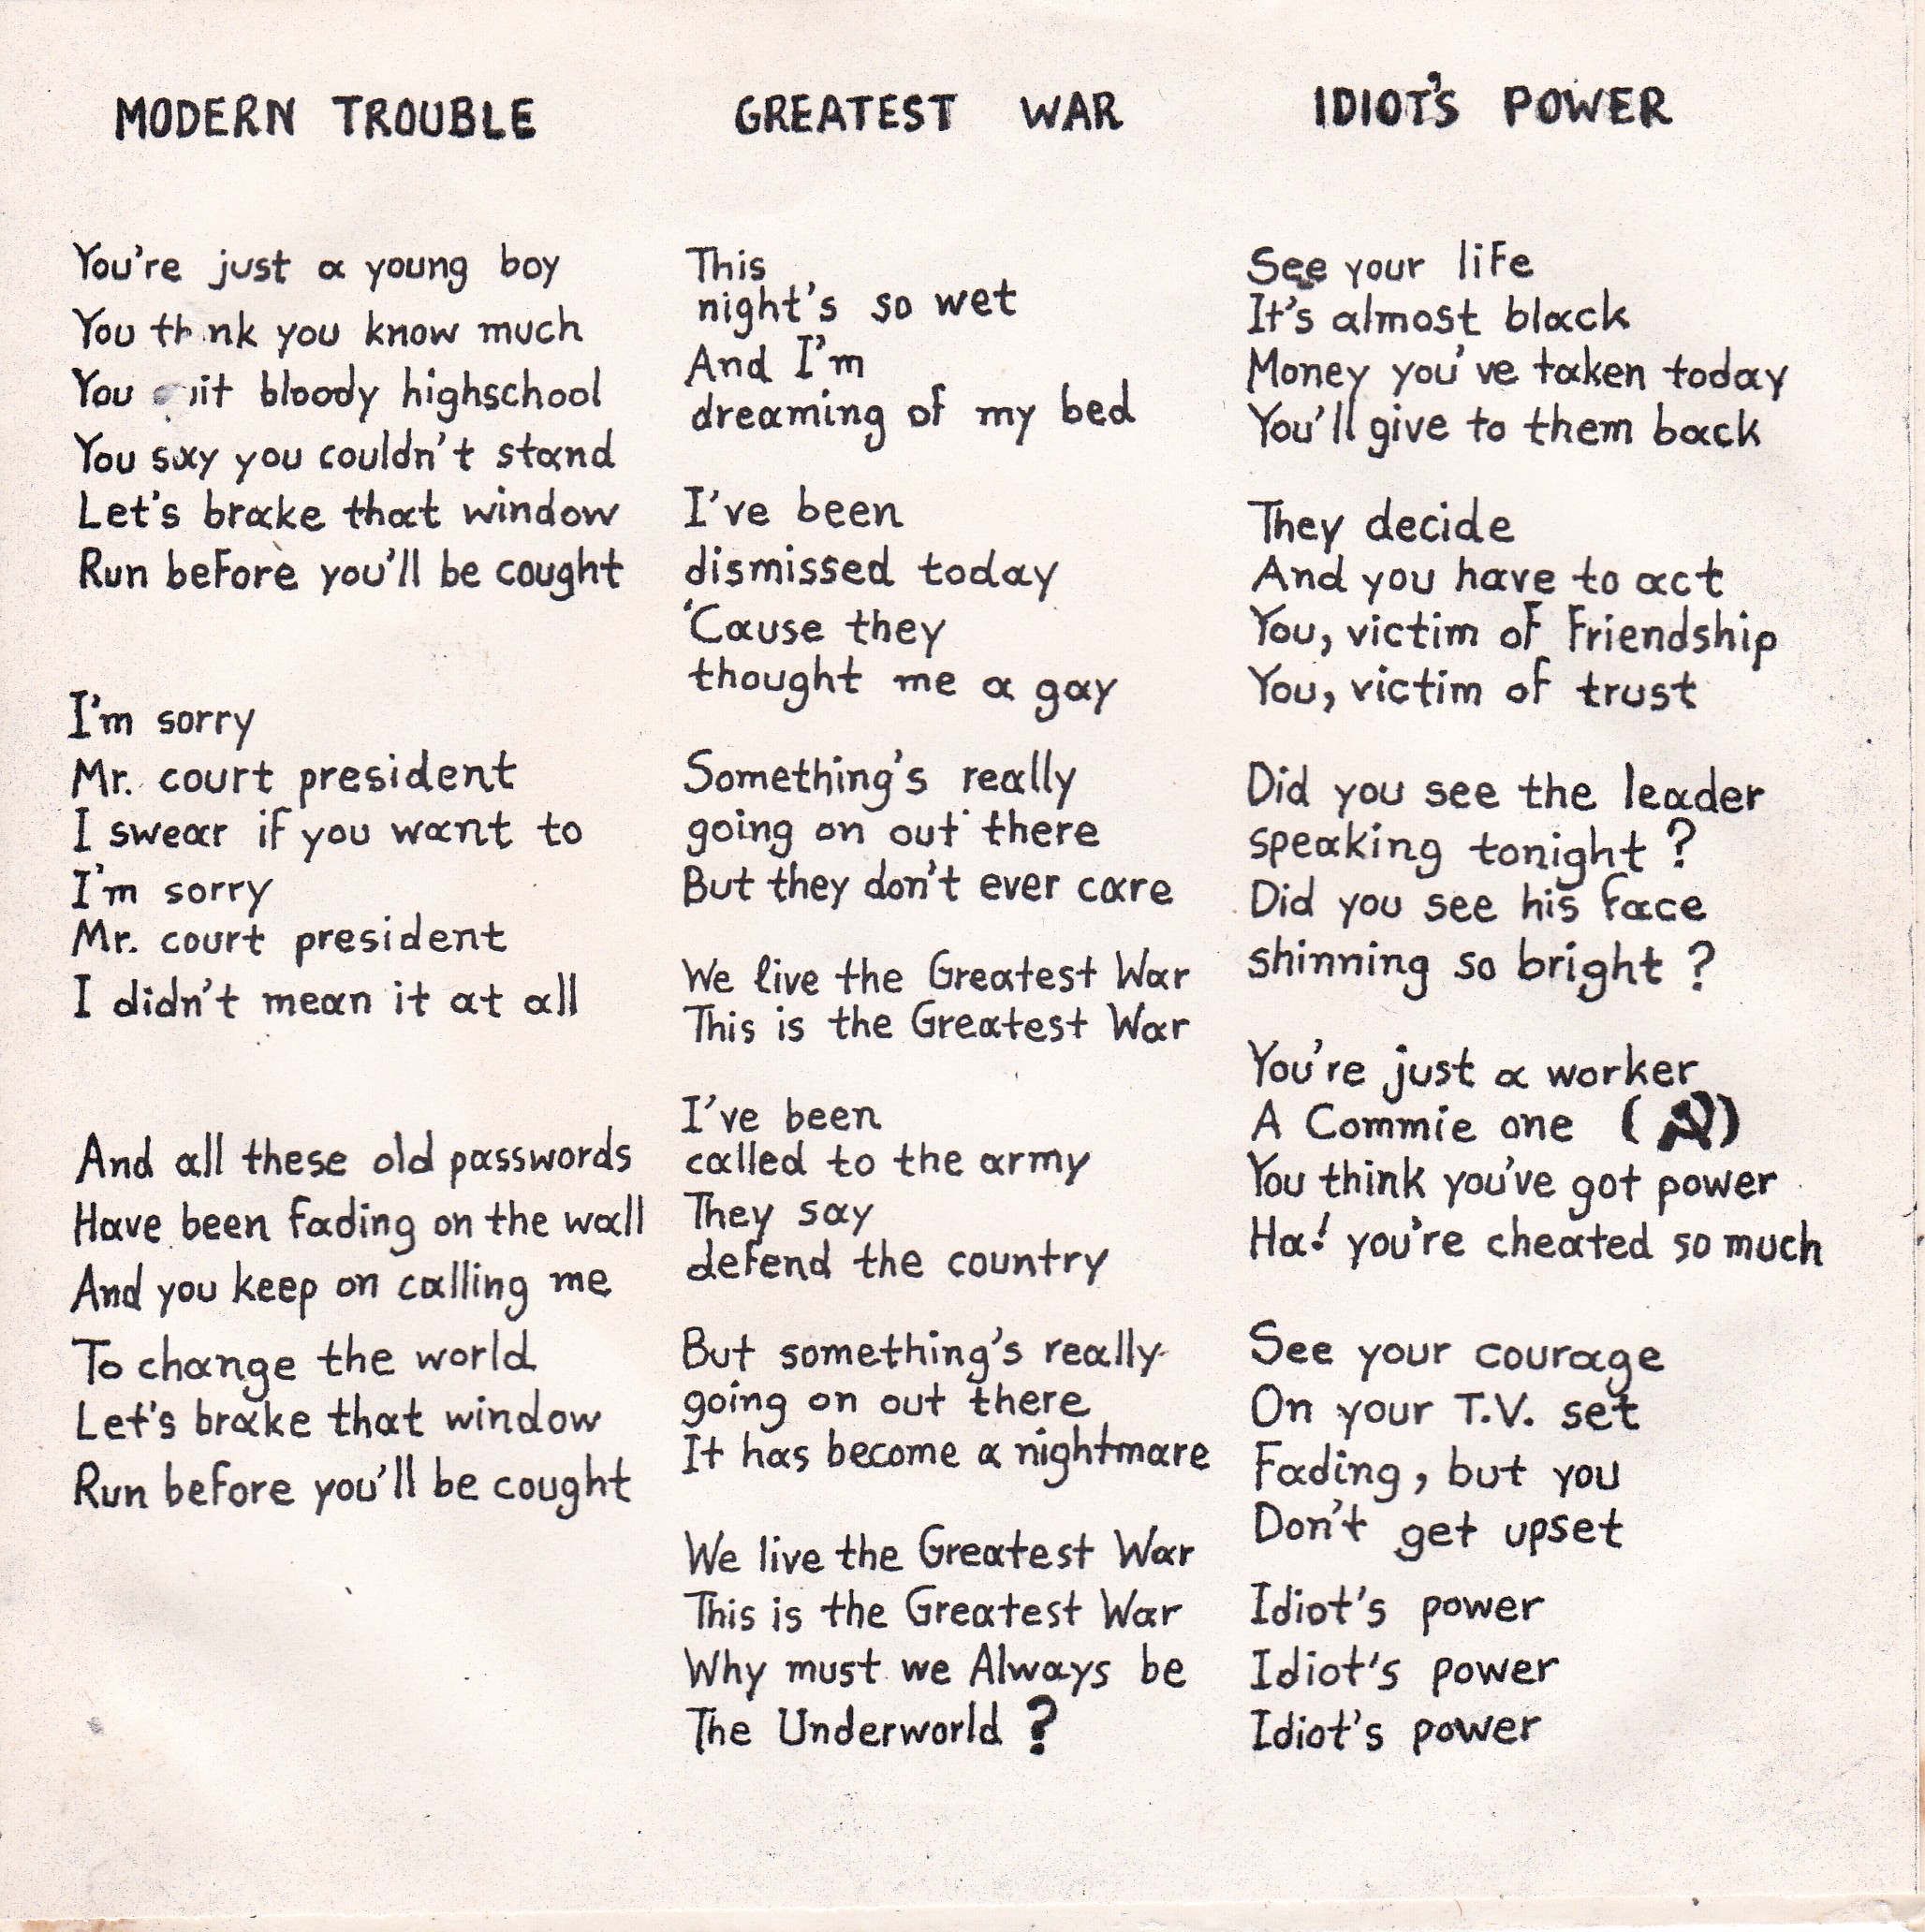 MODERN TROUBLE
You're just a young boy
You think you know much
You quit bloody highschool
You say you couldn't stand
Let's brake that window
Run before you'll be cought
I'm sorry
Mr. court president
I swear if you want to
I'm sorry
Mr. court president
I didn't mean it at all
And all these old passwords
Have been fading on the wall
And you keep on calling me
To change the world
Let's brake that window
Run before you'll be cought
GREATEST WAR
This
night's so wet
And I'm
dreaming of my bed
I've been
dismissed today
'Cause they
thought me a gay
Something's really
going on out there
But they don't ever care
We live the Greatest War
This is the Greatest War
I've been
called to the army
They say
defend the country
But something's really
going on out there
It has become a nightmare
We live the Greatest War
This is the Greatest War
Why must we Always be
The Underworld ?
IDIOT'S POWER
See your life
It's almost black
Money you've taken today
You'll give to them back
They decide
And you have to act
You, victim of friendship
You, victim of trust
Did you see the leader
speaking tonight ?
Did you see his face
shinning so bright ?
You're just a worker
A Commie one (☭)
You think you've got power
Ha! you're cheated so much
See your courage
On your T.V. set
Fading, but you
Don't get upset
Idiot's power
Idiot's power
Idiot's power